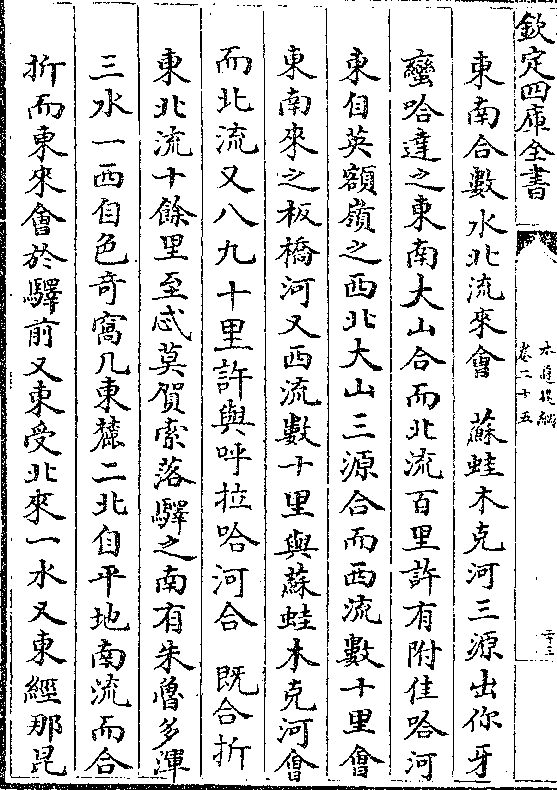 欽定四庫全書
水道提綱
卷二十五
二十三
東南合數水北流來會　蘇蛙木克河三源出你牙
蠻哈達之東南大山合而北流百里許有附佳哈河
東自英額嶺之西北大山三源合而西流數十里會
東南來之板橋河又西流數十里與蘇蛙木克河會
而北流又八九十里許與呼拉哈河合　既合折
東北流十餘里至忒莫賀索落驛之南有朱魯多渾
三水一西自色奇窩几東麓二北自平地南流而合
折而東來會於驛前又東受北來一水又東經那昆